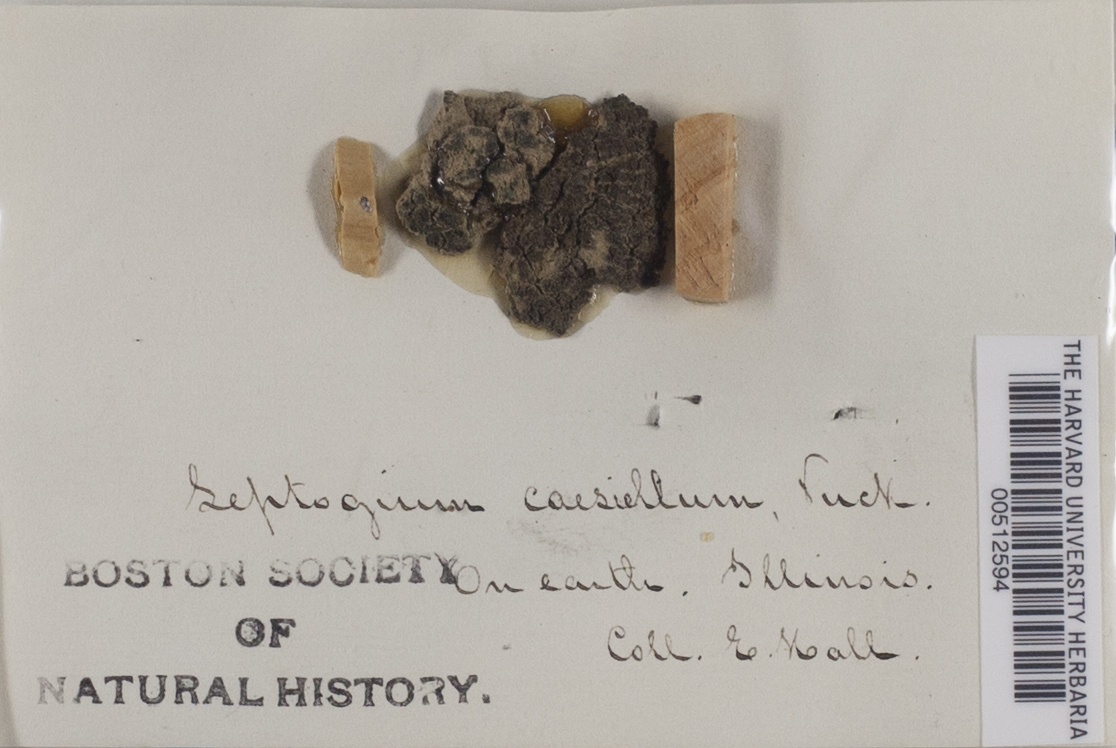 Leptogium caesiellum, Tuck.
On earth. Illinois.
Coll. E. Hall.
BOSTON SOCIETY
OF
NATURAL HISTORY.
THE HARVARD UNIVERSITY HERBARIA
00512594